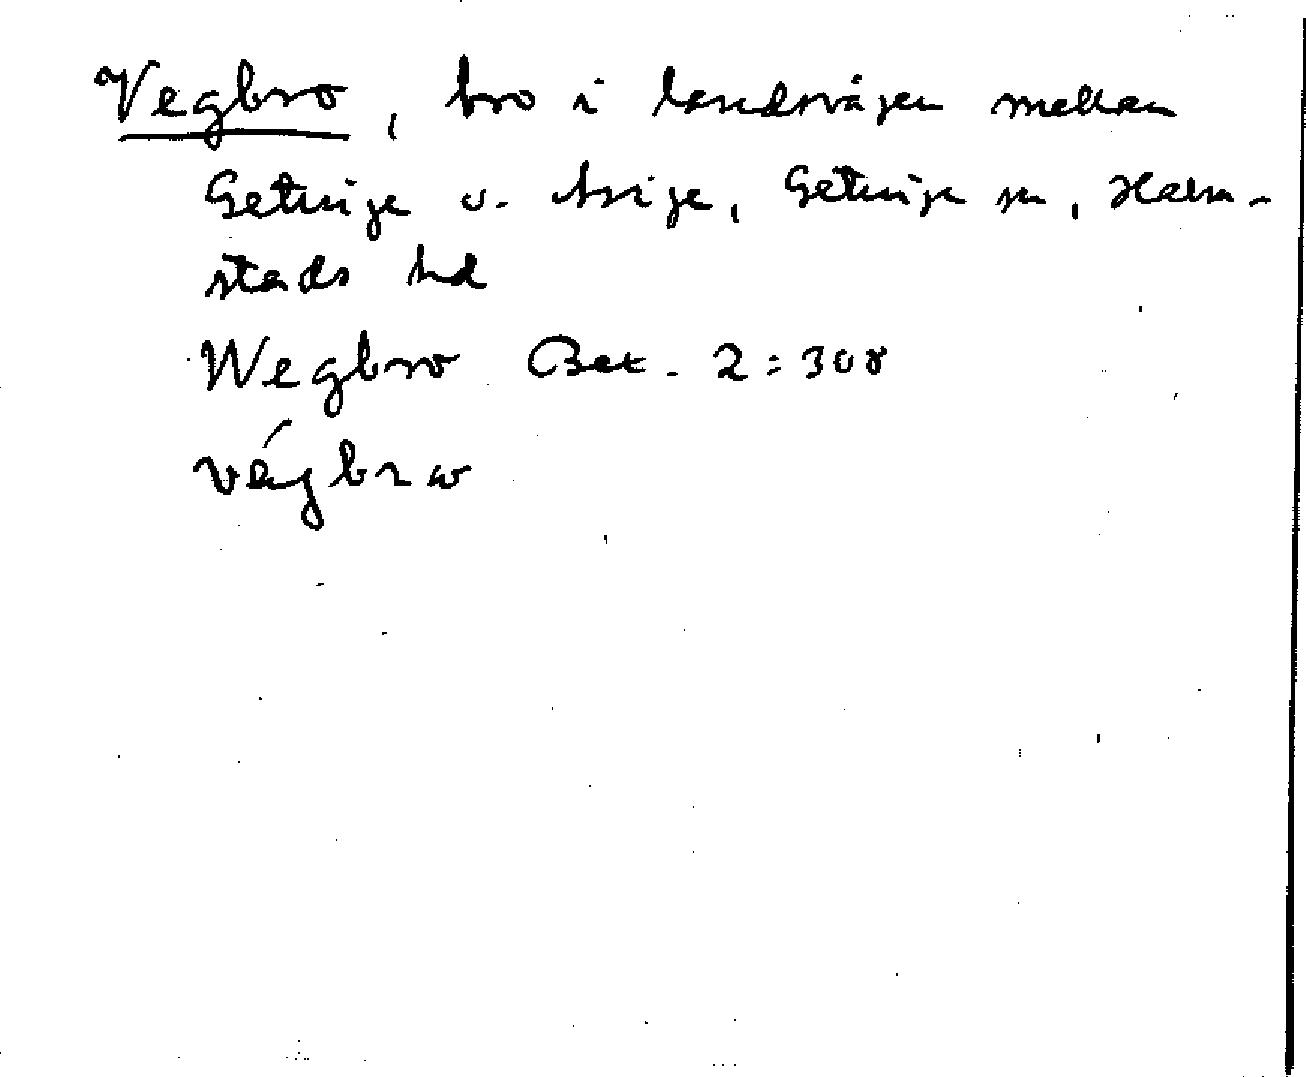 Vegbro, bro i landsvägen mellan
Getinge o. Årige, Getinge sn, Halm-
stads hd
Wegbro Bex. 2:308
végbrω